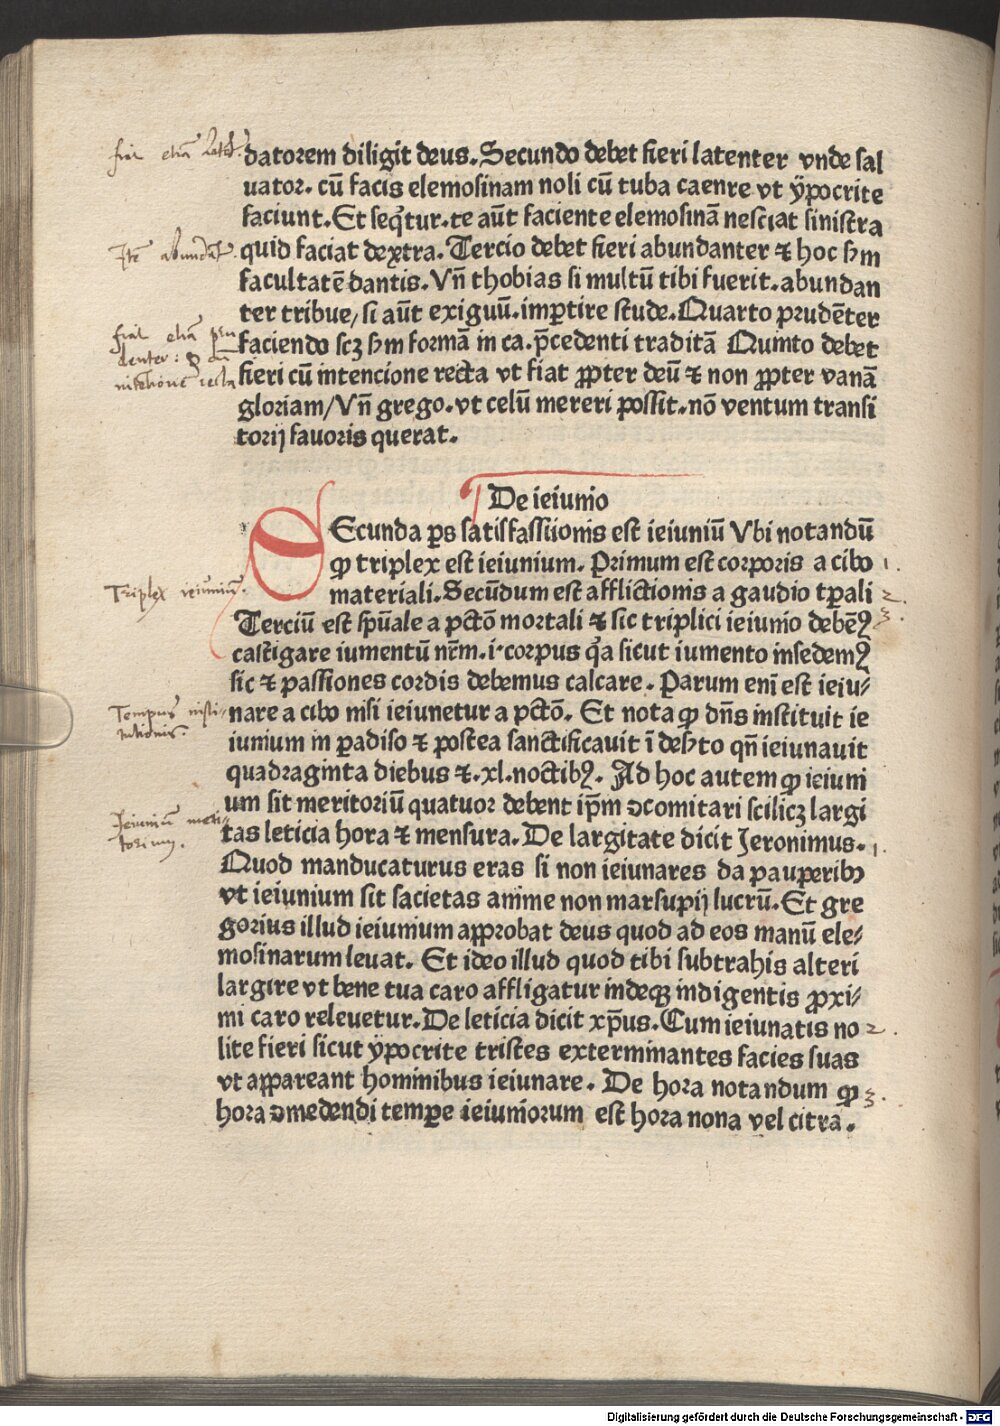 datorem diligit deus. Secundo debet fieri latenter vnde sal
uator. cū facis elemosinam noli cū tuba caenre vt ÿpocrite
faciunt. Et seq̄tur. te aūt faciente elemosinā nesciat sinistra
quid faciat dextra. Tercio debet fieri abundanter ⁊ hoc ẜm
facultatē dantis. Vn̄ thobias si multū tibi fuerit. abundan
ter tribue/ si aūt exiguū. imꝑtire stude. Quarto prudēter
faciendo scꝫ ẜm formā in ca. p̄cedenti traditā Quinto debet
fieri cū intencione recta vt fiat ꝓpter deū ⁊ non ꝓpter vanā
gloriam/ Vn̄ grego. vt celū mereri possit. nō ventum transi
torij fauoris querat.
De ieiunio
Ecunda ꝑs satisfasstionis est ieiuniū Vbi notandū
ꝙ triplex est ieiunium. Primum est corporis a cibo
1.
materiali. Secūdum est afflictionis a gaudio tꝑali
2.
Terciū est spūale a pctō mortali ⁊ sic triplici ieiunio debēꝰ
3.
castigare iumentū nr̄m. i. corpus q̄a sicut iumento insedemꝰ
sic ⁊ passiones cordis debemus calcare. Parum enī est ieiu⸗
nare a cibo nisi ieiunetur a pctō. Et nota ꝙ dn̄s instituit ie
iunium in ꝑadiso ⁊ postea sanctificauit ī deẜto qn̄ ieiunauit
quadraginta diebus ⁊. xl. noctibꝰ. Ad hoc autem ꝙ ieiuni
um sit meritoriū quatuor debent ip̄m ꝯcomitari scilicꝫ largi
tas leticia hora ⁊ mensura. De largitate dicit Jeronimus.
1.
Quod manducaturus eras si non ieiunares da pauperibꝰ
vt ieiunium sit sacietas anime non marsupij lucrū. Et gre
gorius illud ieiunium approbat deus quod ad eos manū ele⸗
mosinarum leuat. Et ideo illud quod tibi subtrahis alteri
largire vt bene tua caro affligatur indeqꝫ indigentis ꝓxi⸗
mi caro releuetur. De leticia dicit xp̄us. Cum ieiunatis no
2.
lite fieri sicut ÿpocrite tristes exterminantes facies suas
vt appareant hominibus ieiunare. De hora notandum ꝙ
3.
hora ꝯmedendi tempe ieiuniorum est hora nona vel citra.
fiat etiā
Itē
fiat etiā pru
denter: ⁊ cū
recta
Triplex ieiuniū.
Tempus insti⸗
tutionis.
Ieiuniū meri⸗
torium.
Digitalisierung gefördert durch die Deutsche Forschungsgemeinschaft - DFG